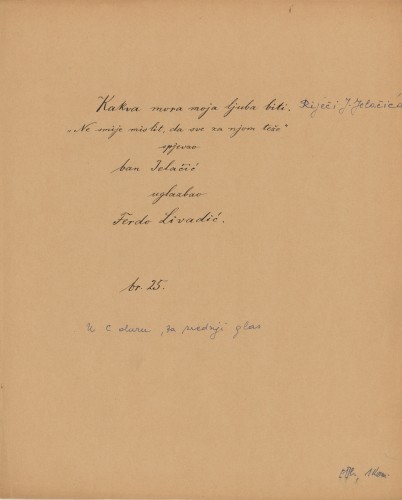 Kakva mora moja ljuba biti. Riječi J. Jelačića
„Ne smije mislit, da sve za njom teže"
spjevao
ban Jelačić
uglazbao
Ferdo Livadić.
br. 25.
U C duru, za srednji glas
1 kom.